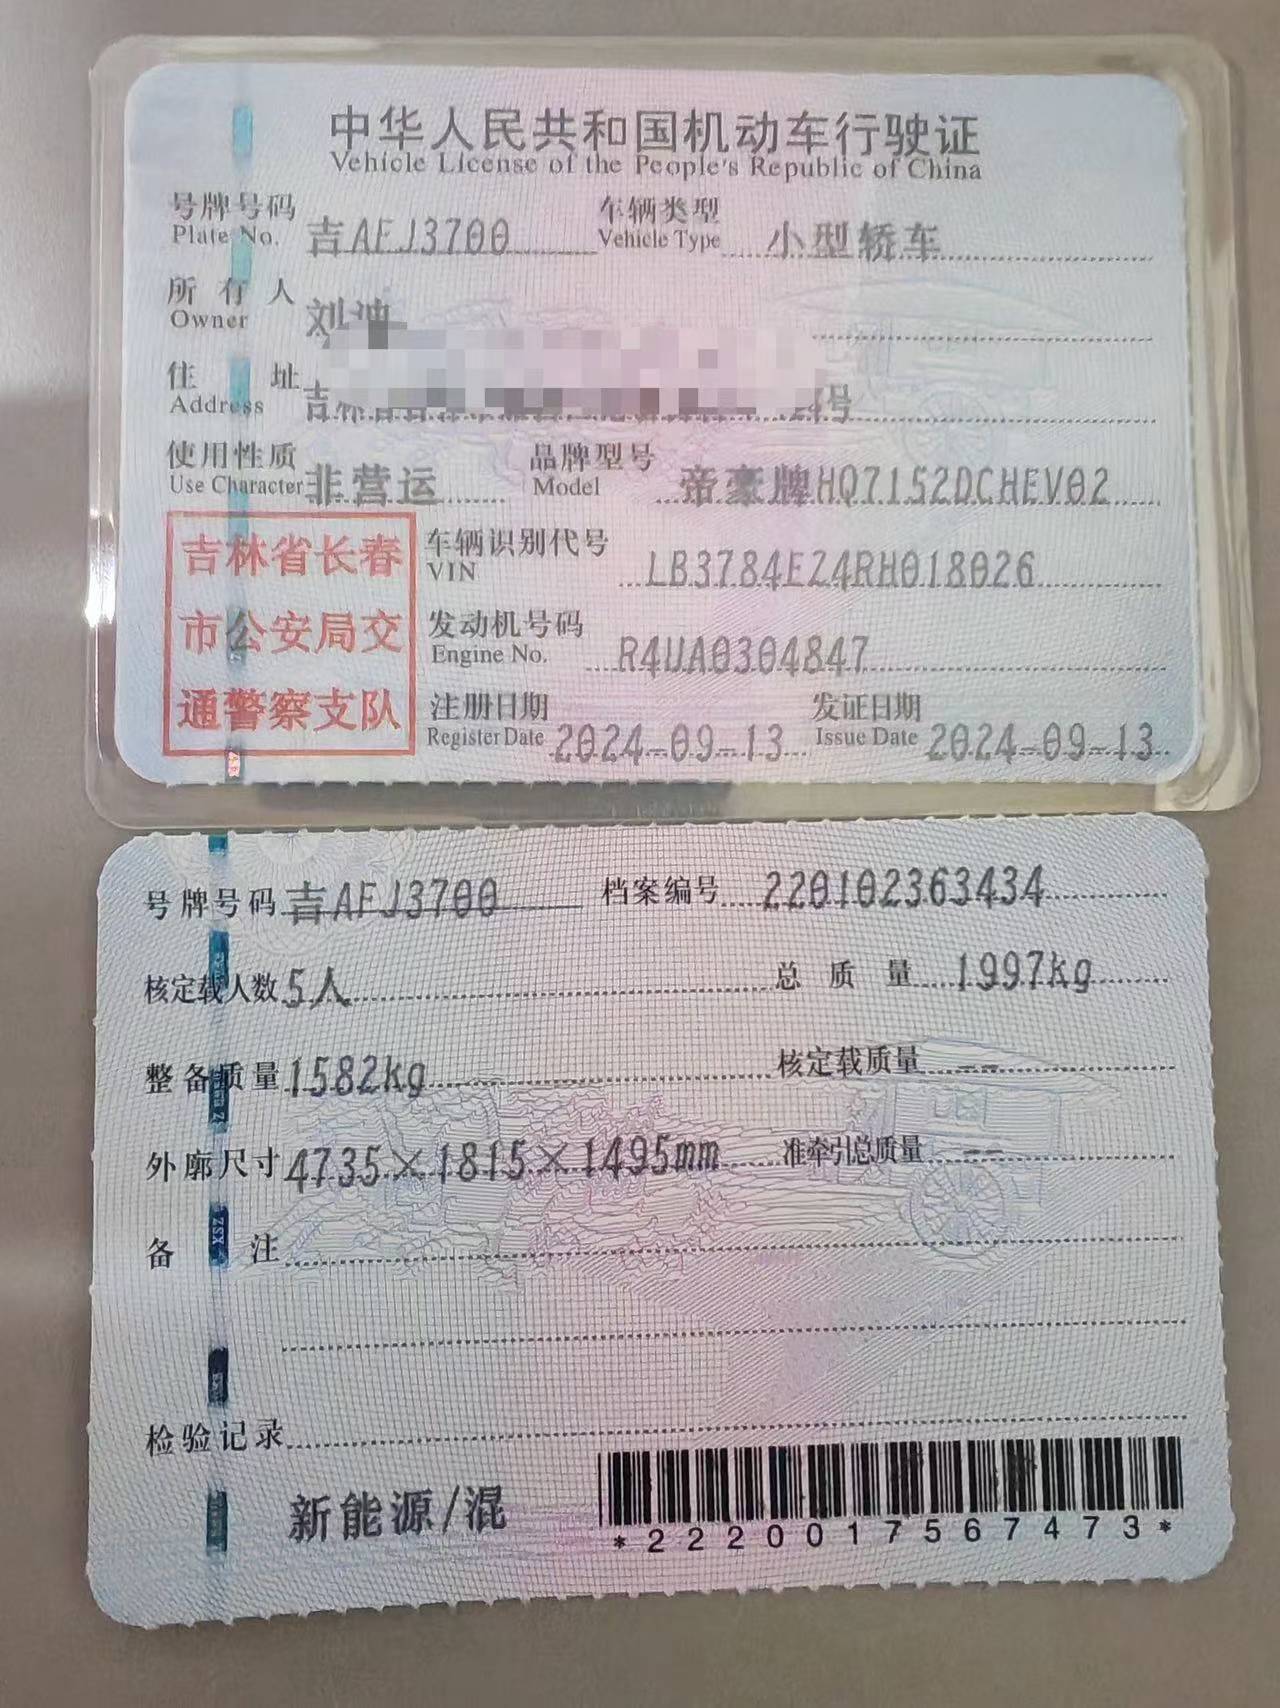 中华人民共和国机动车行驶证
Vehicle License of the People's Republic of China
号牌号码 吉AFJ3700 车辆类型 小型轿车
Plate No. Vehicle Type
所有人 刘
Owner
住址 号
Address
使用性质 非营运 品牌型号 帝豪牌HQ7152DCHEV02
Use Character Model
吉林省长春
市公安局交
通警察支队
车辆识别代号 LB3784EZ4RH018026
VIN
发动机号码 R4UA0304847
Engine No.
注册日期 2024-09-13 发证日期 2024-09-13
Register Date Issue Date
号牌号码 吉AFJ3700 档案编号 220102363434
核定载人数 5人 总质量 1997kg
整备质量 1582kg 核定载质量 --
外廓尺寸 4735×1815×1495mm 准牵引总质量 --
备注
检验记录
新能源/混
*2220017567473*